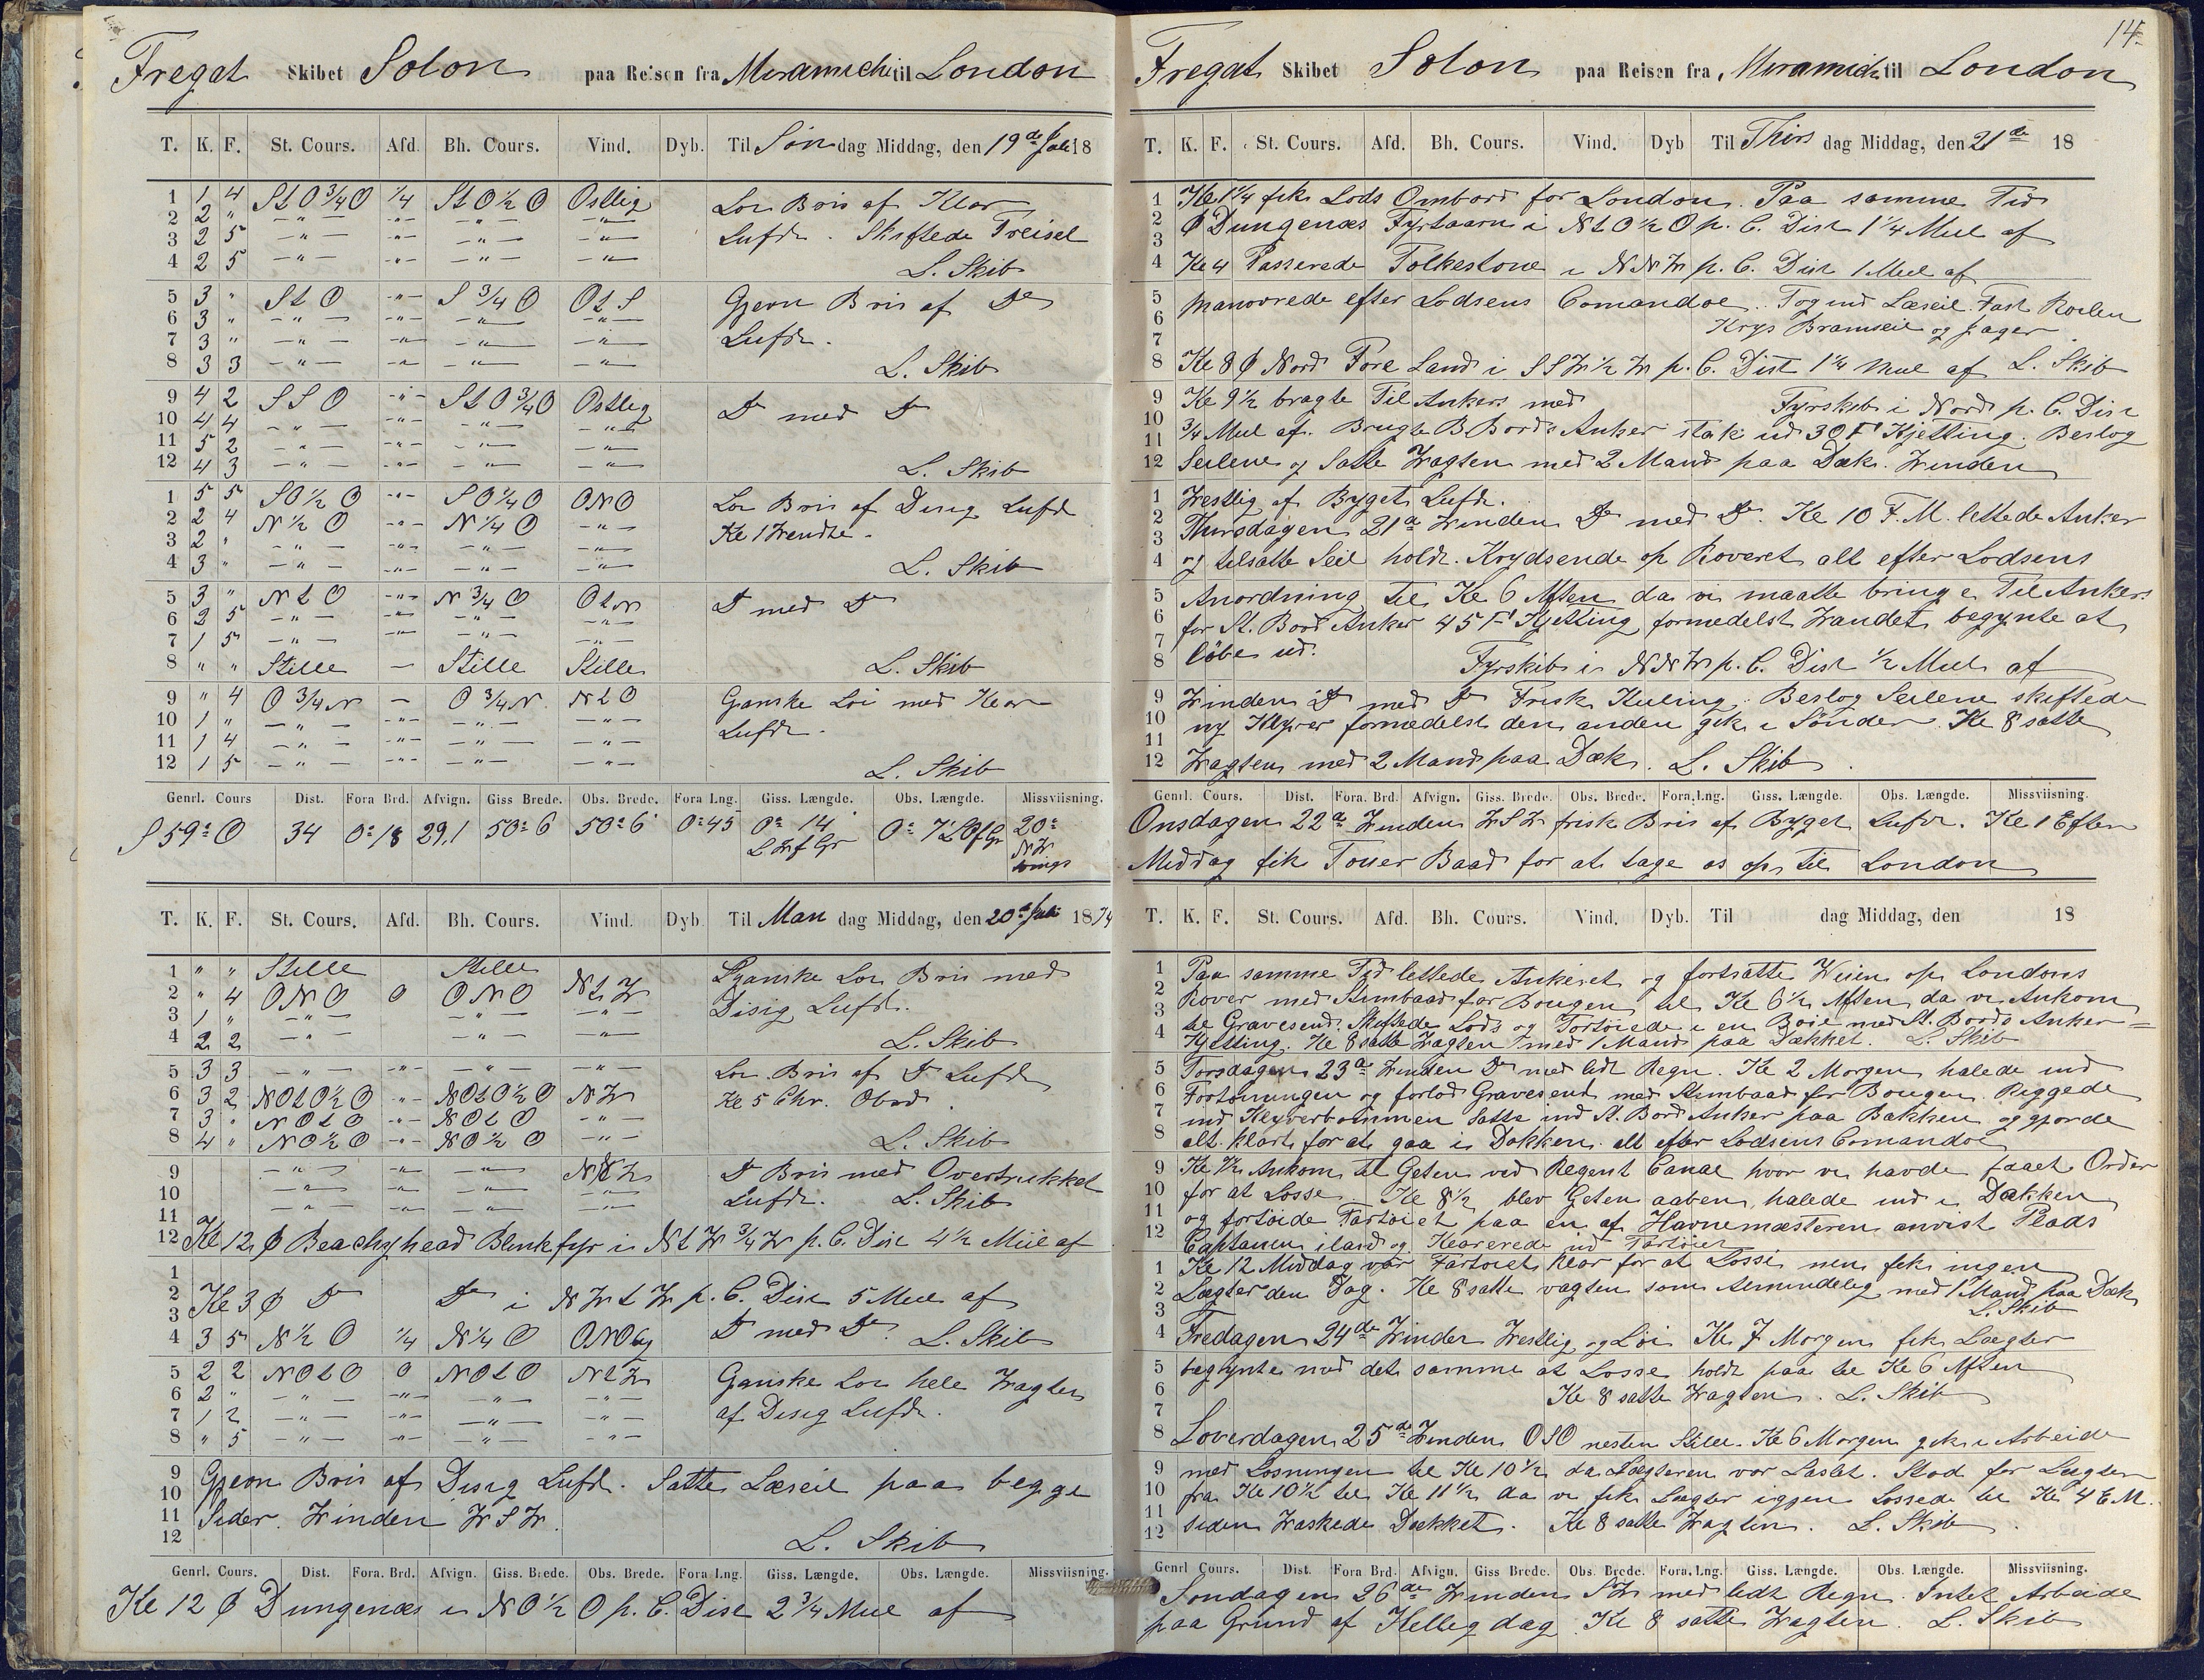 Fregat Skibet Solon paa Reisen fra Miramichi til London
T. K. F. St. Cours. Afd. Bh. Cours. Vind. Dyb. Til Søn dag Middag, den 19de Juli 18
1 1 4 St O 3/4 O 1/4 St O 1/2 O Ostlig Loi Bris af Klar
2 2 " -"- -"- -"- -"-
3 2 5 -"- -"- -"- -"- Lufdt. Skiftede Treisel
4 2 5 -"- -"- -"- -"- L. Skib
5 3 " St O -"- S 3/4 O Ot S Gjevn Bris af Do
6 3 " -"- -"- -"- -"-
7 3 " -"- -"- -"- -"- Lufdt.
8 3 3 -"- -"- -"- -"- L. Skib
9 4 2 SSO -"- St O 3/4 O Ostlig Do med Do
10 4 4 -"- -"- -"- -"-
11 5 2 -"- -"- -"- -"-
12 4 3 -"- -"- -"- -"- L. Skib
1 5 5 SO 1/2 O -"- SO 1/4 O ONO Loi Bris af Disig Lufdt
2 2 4 N 1/2 O -"- N 1/4 O -"- Kl 1 Wendte.
3 2 " -"- -"- -"- -"-
4 3 " -"- -"- -"- -"- L. Skib
5 3 " Nt O -"- N 3/4 O Ot N Do med Do
6 2 5 -"- -"- -"- -"-
7 1 5 -"- -"- -"- -"-
8 " " Stille - Stille Stille L. Skib
9 " 4 O 3/4 N - O 3/4 N Nt O Ganske Loi med Klar
10 1 " -"- -"- -"- -"- Lufdt.
11 1 4 -"- -"- -"- -"-
12 1 5 -"- -"- -"- -"- L. Skib
Genrl. Cours Dist. Fora Brd. Afvign. Giss Brede. Obs. Brede. Fora Lng. Giss. Længde. Obs. Længde. Missviisning.
S 59° O 34 0°18 29,1 50°6 50°6 0°45 0° 14 L.W.f Gr 0° 7' L.O f Gr 20° NW
T. K. F. St. Cours. Afd. Bh. Cours. Vind. Dyb Til Man dag Middag, den 20de Juli 1874
1 " " Stille Stille Ganske Loi Bris med
2 " 4 ONO 0 ONO Nt W Disig Lufdt.
3 1 " -"- -"- -"-
4 2 2 -"- -"- -"- L. Skib
5 3 3 -"- -"- -"- -"- Loi Bris af Do Lufdt
6 3 2 NOt O 1/2 O -"- NOt O 1/2 O NW Kl 5 Chr. Obsd.
7 3 " NOt O -"- NOt O -"-
8 4 " NO 1/2 O -"- NO 1/2 O -"- L. Skib
9 -"- -"- -"- NNW Do Bris med Overtrukket
10 -"- -"- -"- Lufdt. L. Skib
11 -"- -"- -"-
12 Kl 12 Φ Beachyhead Blinkfyr i Nt W 3/4 W p. C. Dist 4 1/2 Miil af
1
2 Kl 3 Φ Do Do i NWt W p. C. Dist 5 Miil af
3
4 3 5 N 1/2 O 1/4 N 1/4 O ONO Do med Do. L. Skib
5 2 2 NOt O 0 NOt O Nt W Ganske Loi hele Wagten
6 2 " -"- -"- -"- -"-
7 1 2 -"- -"- -"- -"- af Disig Lufdt.
8 " 5 -"- -"- -"- -"-
9 Gjevn Bris af Disig Lufdt. Satte Læseil paa begge
10
11 Sider. Winden WSW.
12 L. Skib
Genrl. Cours. Dist. Fora. Brd. Afvign. Giss. Brede. Obs. Brede. Fora Lng. Giss. Længde. Obs. Længde. Missviisning.
Kl 12 Φ Dungenæs i NO 1/2 O p. C. Dist 2 3/4 Miil af
14.
Fregat Skibet Solon paa Reisen fra Miramichi til London
T. K. F. St. Cours. Afd. Bh. Cours. Vind. Dyb Til Thirs dag Middag, den 21de 18
1 Kl 1 1/4 fik Lods Ombord for London. Paa samme Tid
2 Φ Dungenæs Fyrtaarn i Nt O 1/2 O p. C. Dist 1 1/4 Miil af
3
4 Kl 4 Passerede Folkestone i NNW p. C. Dist 1 Miil af
5 Manovrede efter Lodsens Comandoe. Tog ind Læseil. Fast Roilen
6
7 Krys Bramseil og Jager
8 Kl 8 Φ Nord Fore Land i SSW 1/2 W p. C. Dist 1 1/4 Miil af L. Skib
9 Kl 9 1/2 bragte Til Ankers med Fyrskib i Nord p. C. Dist
10
11 3/4 Miil af. Brugte B.Bords Anker stak ud 30 F Kjetting. Beslog
12 Seilene og Satte Wagten med 2 Mand paa Dæk. Winden
1 Westlig af Byget Lufdt.
2 Thirsdagen 21de Winden Do med Do. Kl 10 F.M. lettede Anker
3
4 og tilsatte Seil holdt Krydsende op Roveret alt efter Lodsens
5 Anordning til Kl 6 Aften da vi maatte bringe Til Ankers
6 for St. Bord Anker 45 F Kjetting formedelst Wandet begynte at
7
8 løbe ud. Fyrskib i NNW p. C. Dist 1/2 Miil af
9 Winden Do med Do Frisk Kuling. Beslog Seilene skiftede
10 ny Klyver formedelst den anden gik i Sønder. Kl 8 satte
11
12 Wagten med 2 Mand paa Dæk. L. Skib.
Genrl. Cours. Dist. Fora. Brd. Afvign. Giss. Brede. Obs. Brede. Fora. Lng. Giss. Længde. Obs. Længde. Missviisning.
Onsdagen 22de Winden WSW frisk Bris af Byget Lufdt. Kl 1 Efter
Middag fik Touer Baad for at tage os op til London
T. K. F. St. Cours. Afd. Bh. Cours. Vind. Dyb. Til dag Middag, den 18
1 Paa samme Tid lettede Ankeret og fortsatte Weien op Londons
2 Rover med Stimbaad for Bougen til Kl 6 1/2 Aften da vi Ankom
3 til Gravesend. Skiftede Lods og Fortøiede i en Boie med St. Bords Anker=
4 Kjetting. Kl 8 satte Wagten med 1 Mand paa Dækket. L. Skib
5 Torsdagen 23de Winden Do med lidt Regn. Kl 2 Morgen halede ind
6 Fortøiningen og forlod Gravesend med Stimbaad for Bougen. Riggede
7 ind Klyverbommen Satte ind St. Bord Anker paa Bakken og gjorde
8 alt klart for at gaa i Dokken. alt efter Lodsens Comandoe
9 Kl 7 1/2 Ankom til Geten ved Regent Canal hvor vi havde faaet Order
10 for at Losse. Kl 8 1/2 blev Geten aaben, halede ind i Dokken
11 og fortøide Fartøiet paa en af Havnemæsteren anvist Plads
12 Captainen iland og Klarerede ind Fartøiet
1 Kl 12 Middag var Fartøiet klar for at Losse men fik ingen
2 Lægter den Dag. Kl 8 satte vagten som Almindelig med 1 Mand paa Dæk
3 L. Skib
4 Fredagen 24de Winder Westlig og Loi Kl 7 Morgen fik Lægter
5 begynte med det samme at Losse holdt paa til Kl 6 Aften
6 Kl 8 satte Wagten. L. Skib
7
8 Loverdagen 25de Winden OSO nesten Stille. Kl 6 Morgen gik i Arbeide
9 med Losningen til Kl 10 1/2 da Lægteren var Lastet. Stod for Lægter
10 fra Kl 10 1/2 til Kl 11 1/2 da vi fik Lægter iggjen Lossede til Kl 4 E.M.
11
12 siden Waskede Dækket. Kl 8 satte Wagten. L. Skib.
Genrl Cours. Dist. Fora Brd. Afvign. Giss Brede. Obs. Brede. Fora. Lng. Giss. Længde. Obs. Længde. Missviisning.
Søndagen 26de Winden SW med lidt Regn. Intet Arbeide
paa Grund af Hellig dag. Kl 8 satte Wagten. L. Skib